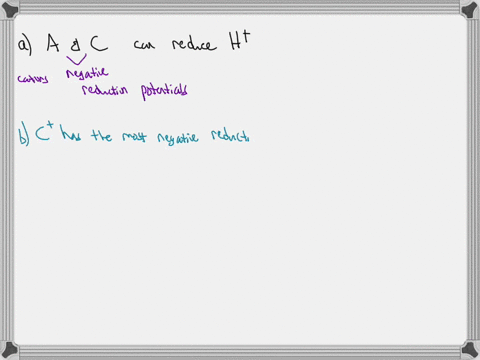 a) A & C can reduce H⁺
cations negative
reduction potentials
b) C⁺ has the most negative reducti